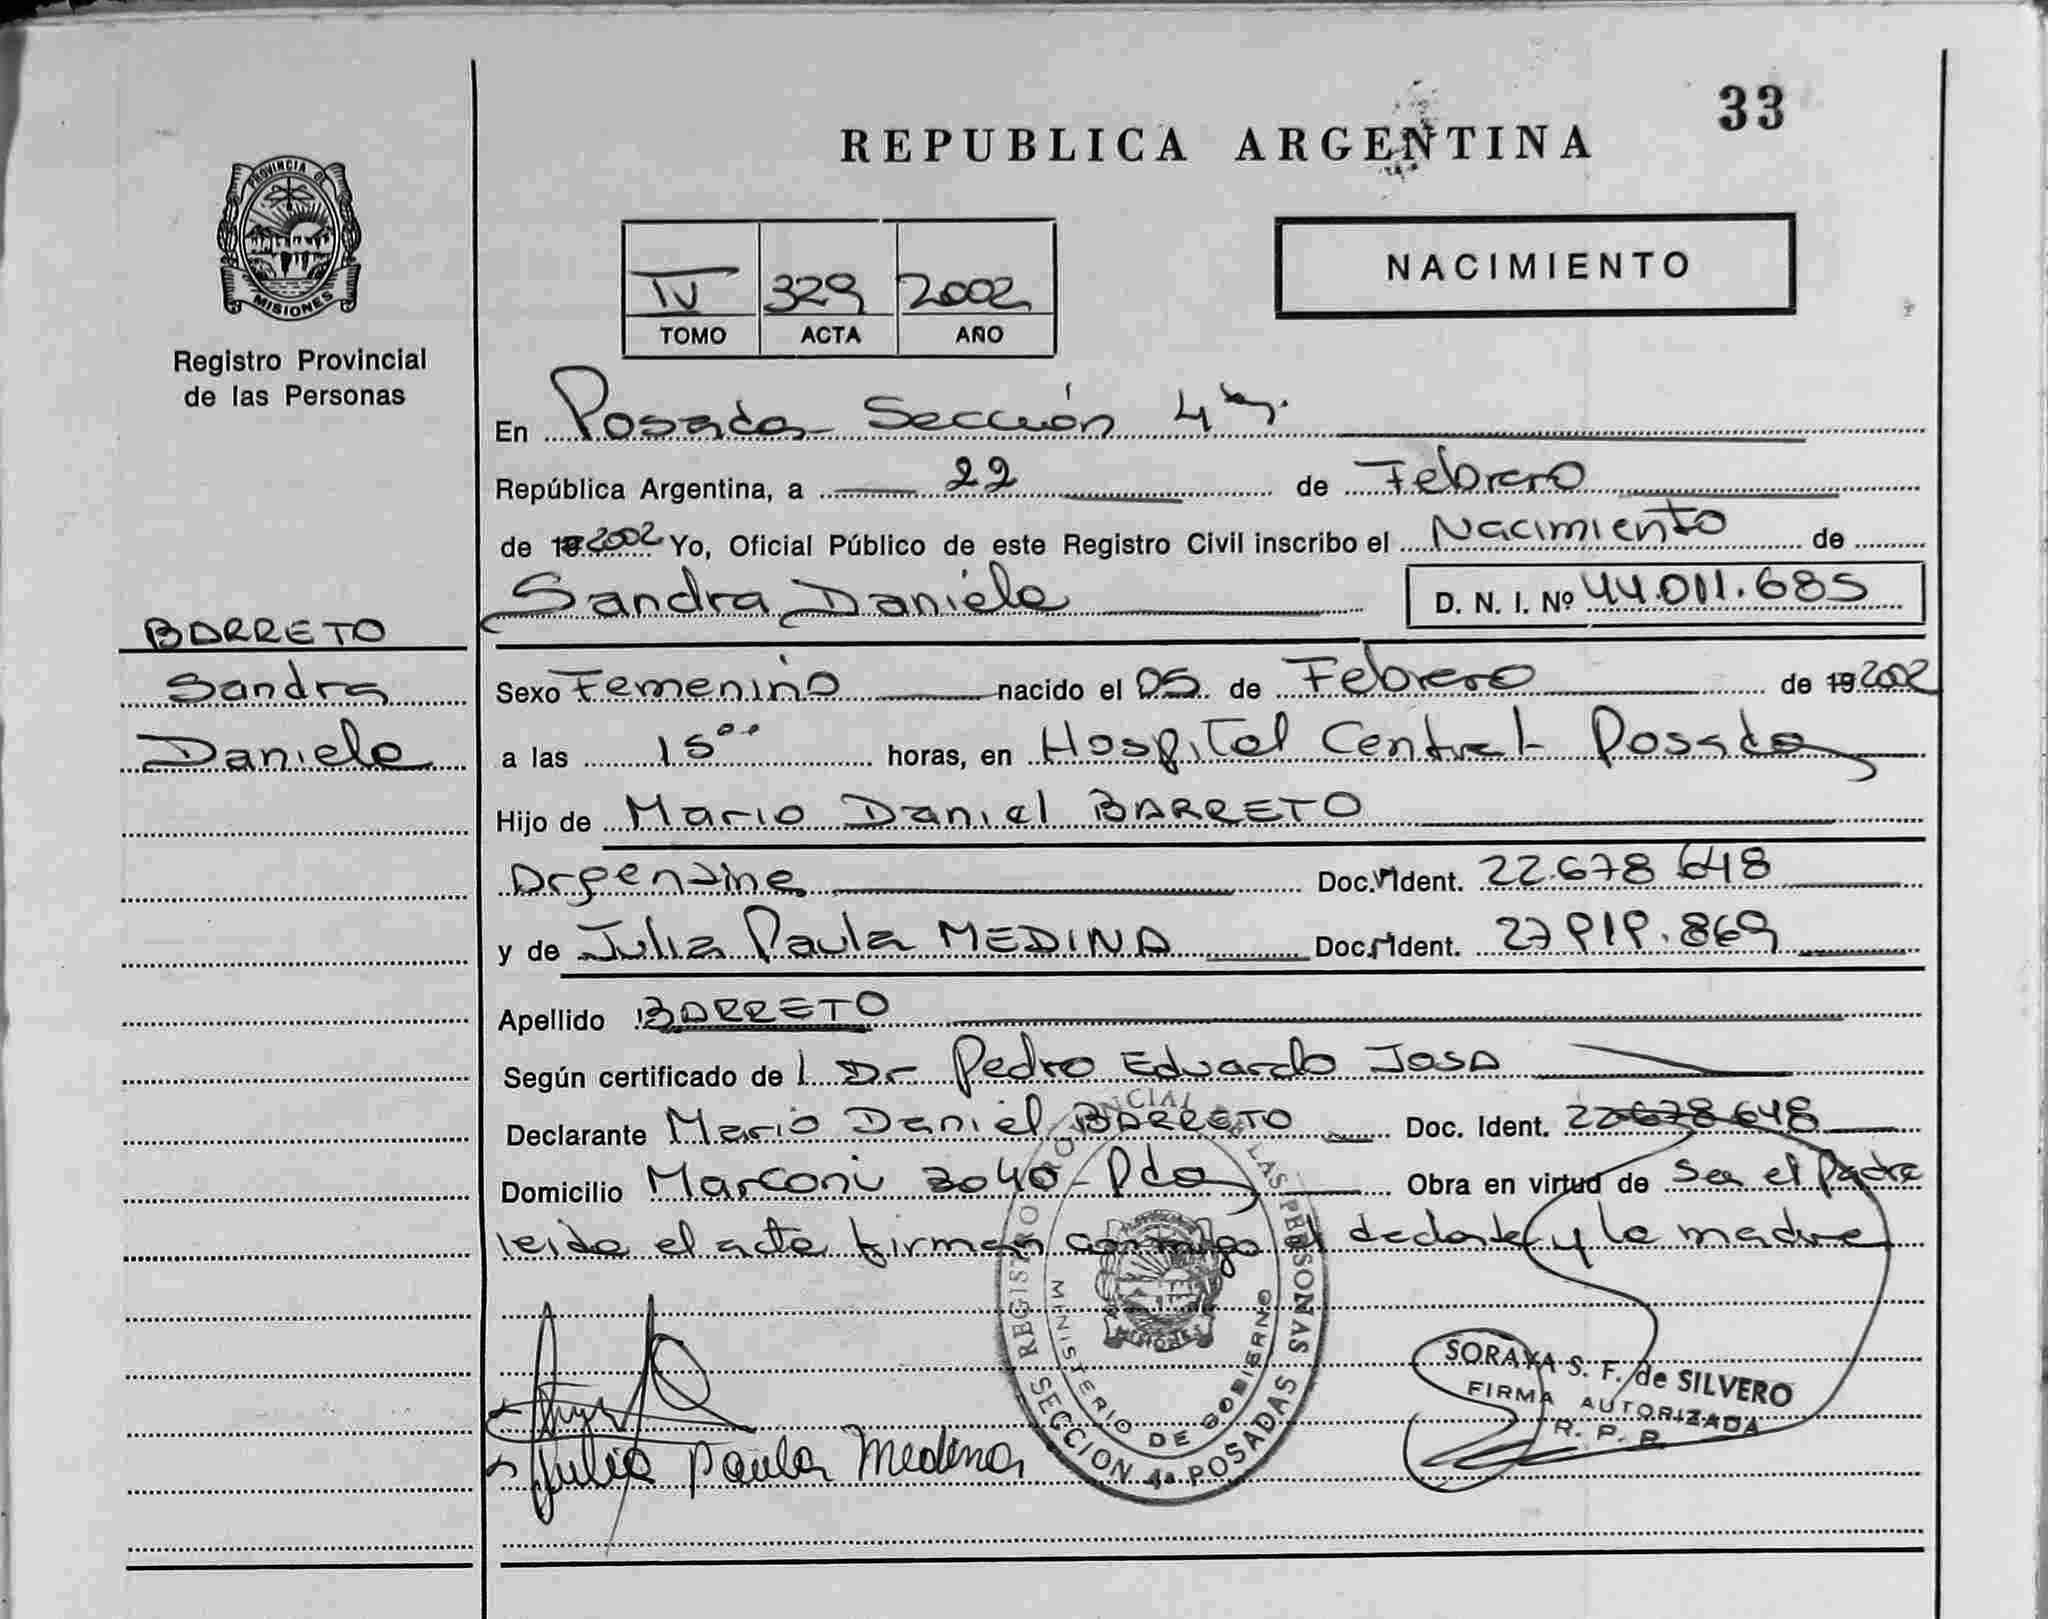 33
REPUBLICA ARGENTINA
PROVINCIA DE
MISIONES
Registro Provincial
de las Personas
NACIMIENTO
IV 329 2002
TOMO ACTA AÑO
En Posadas Sección 4ta.
República Argentina, a 22 de Febrero
de 19 2002 Yo, Oficial Público de este Registro Civil inscribo el Nacimiento de
Sandra Daniela D. N. I. Nº 44.011.685
BARRETO
Sandra
Daniela
Sexo Femenino nacido el 05 de Febrero de 19 2002
a las 15°° horas, en Hospital Central Posadas
Hijo de Mario Daniel BARRETO
Argentina Doc. Ident. 22.678 648
y de Julia Paula MEDINA Doc. Ident. 27 919.869
Apellido BARRETO
Según certificado de l Dr Pedro Eduardo Jasa
Declarante Mario Daniel BARRETO Doc. Ident. 22 678 648
Domicilio Marconi 3040 - Pdas Obra en virtud de Ser el Padre
leida el acta firman conmigo el declarante y la madre
REGISTRO PROVINCIAL DE LAS PERSONAS
MINISTERIO DE GOBIERNO
MISIONES
SECCION 4a POSADAS
SORAYA S. F. de SILVERO
FIRMA AUTORIZADA
R. P. P.
Julia Paula Medina